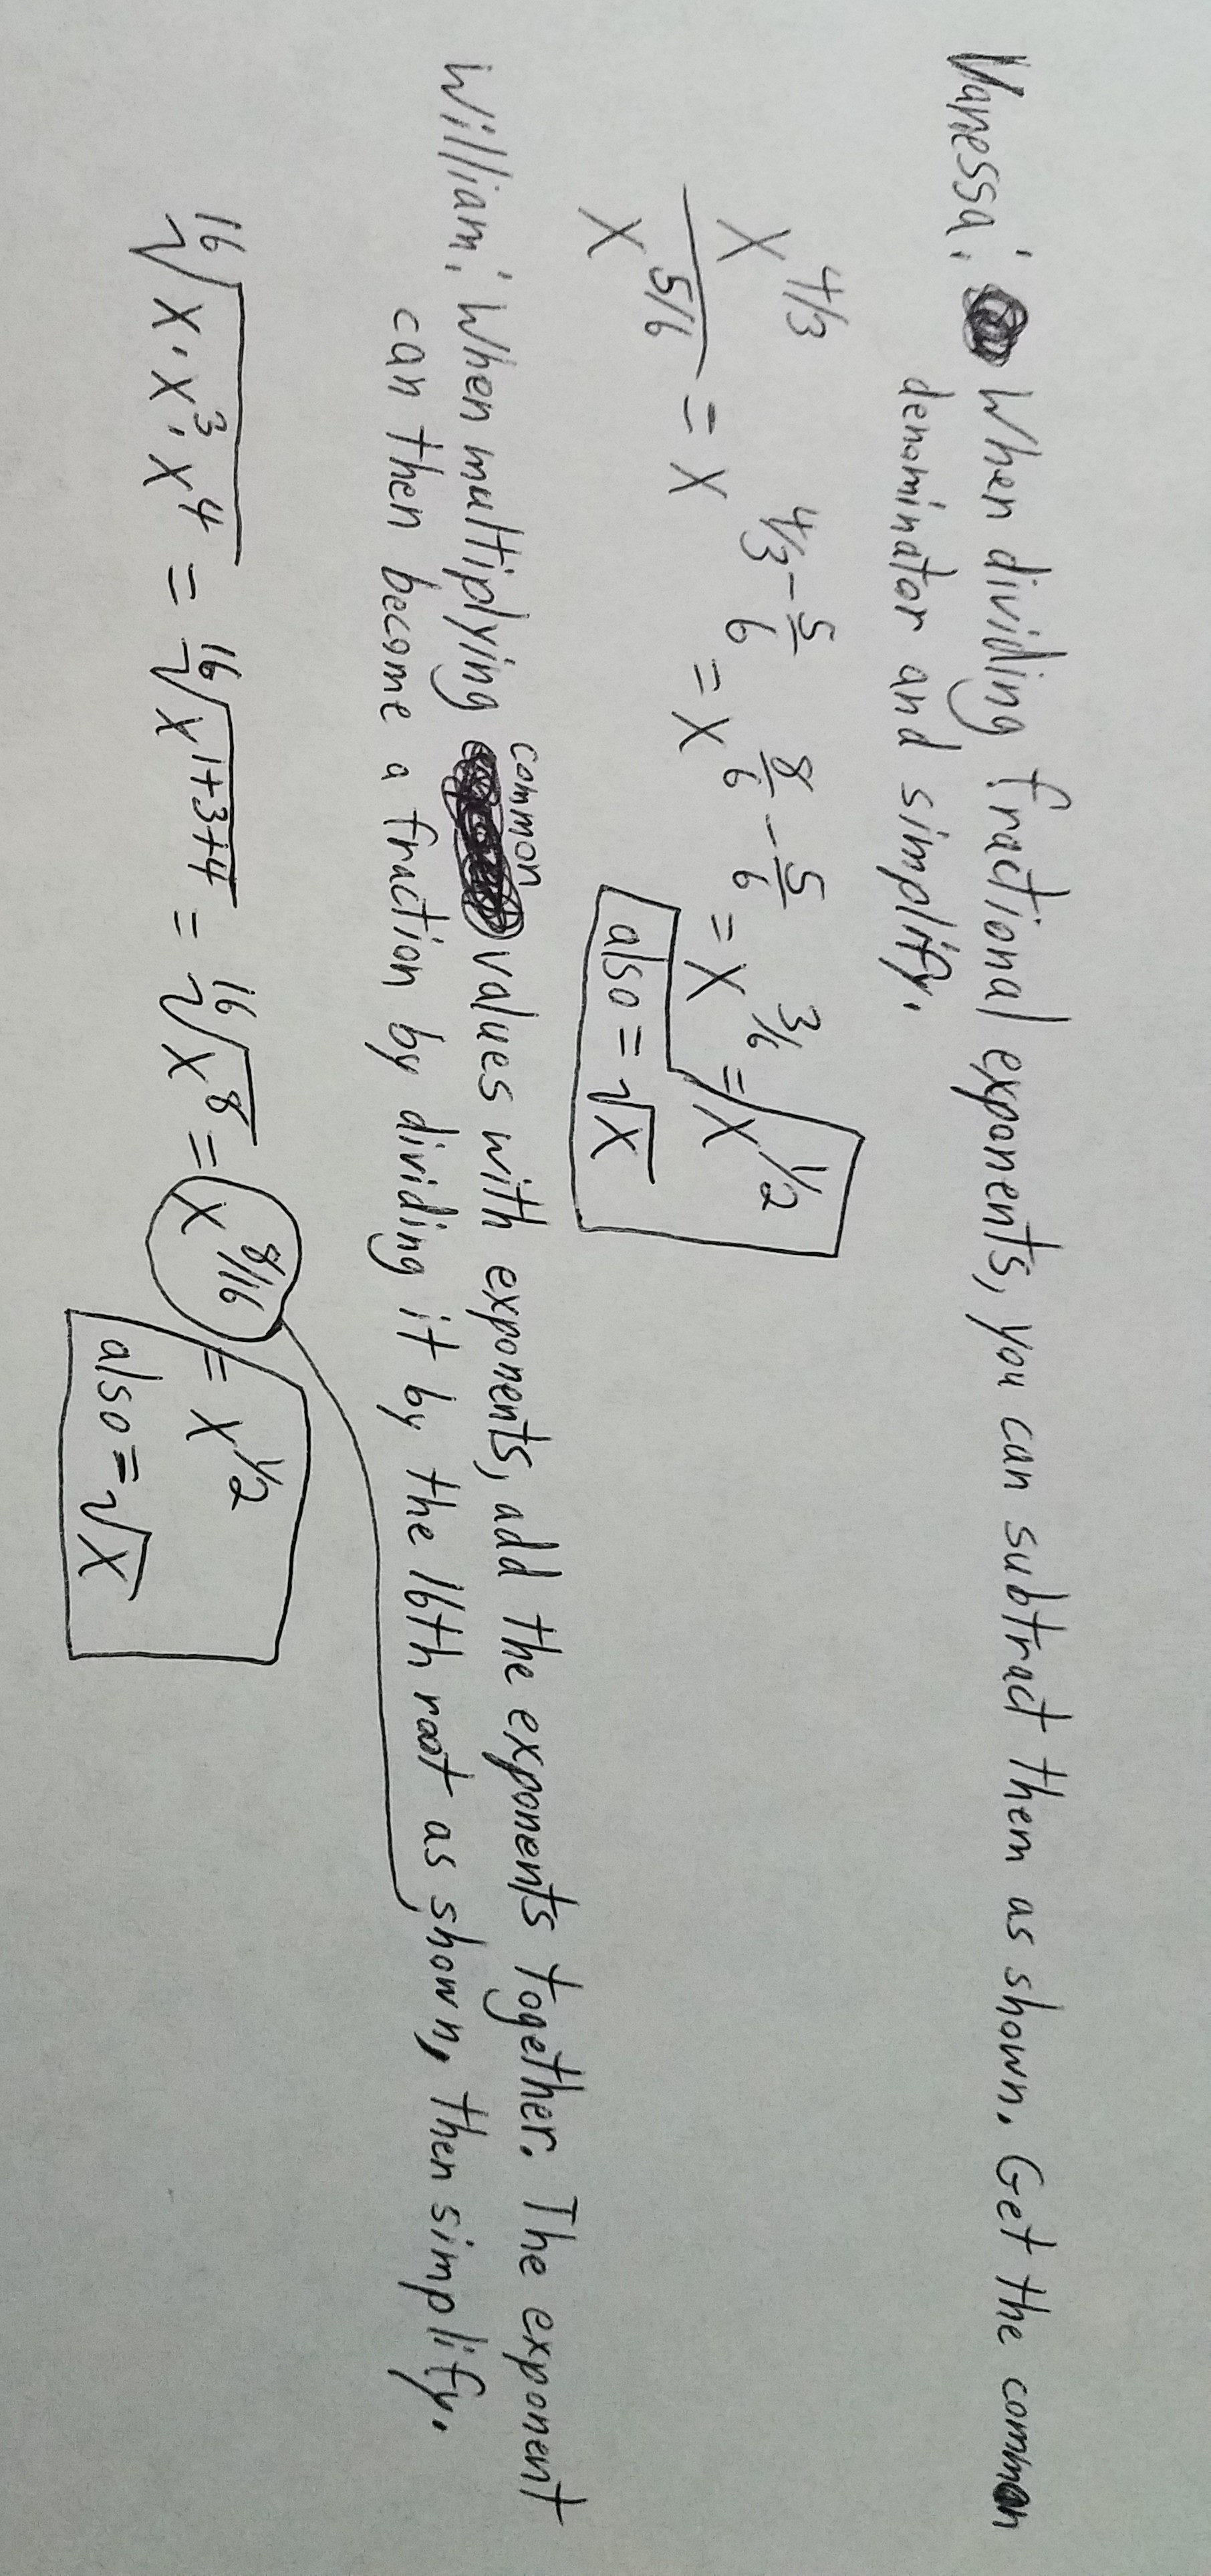 Vanessa: When dividing fractional exponents, you can subtract them as shown. Get the common
denominator and simplify.
x^(4/3) / x^(5/6) = x^(4/3 - 5/6) = x^(8/6 - 5/6) = x^(3/6) = x^(1/2)
also = √x
William: When multiplying common values with exponents, add the exponents together. The exponent
can then become a fraction by dividing it by the 16th root as shown, then simplify.
¹⁶√(x · x³ · x⁴) = ¹⁶√(x^(1+3+4)) = ¹⁶√(x⁸) = x^(8/16) = x^(1/2)
also = √x